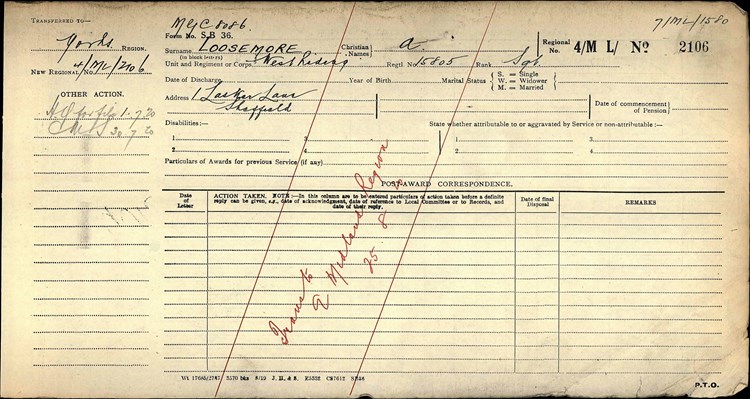 TRANSFERRED TO—
Yorks. REGION.
NEW REGIONAL NO. 4/ML/2106
OTHER ACTION.
1-7-20
30.7.20
MGC 8086.
Form No. S.B 36.
7/ML/1580
Surname LOOSEMORE
(in block letters)
Christian Names A.
Regional No. 4/M L/ No 2106
Unit and Regiment or Corps West Riding Regtl. No. 15805 Rank Sgt
Date of Discharge Year of Birth Marital Status S. = Single
W. = Widower
M. = Married
Address 1 Lane
Sheffield
Date of commencement of Pension
Disabilities:—
State whether attributable to or aggravated by Service or non-attributable:—
1. 3. 1. 3.
2. 4. 2. 4.
Particulars of Awards for previous Service (if any)
POST-AWARD CORRESPONDENCE.
Date of Letter
ACTION TAKEN. NOTE:—In this column are to be entered particulars of action taken before a definite reply can be given, e.g., date of acknowledgment, date of reference to Local Committee or to Records, and date of their reply.
Date of final Disposal
REMARKS
Trans to
Midland Region
25. 8.
P.T.O.